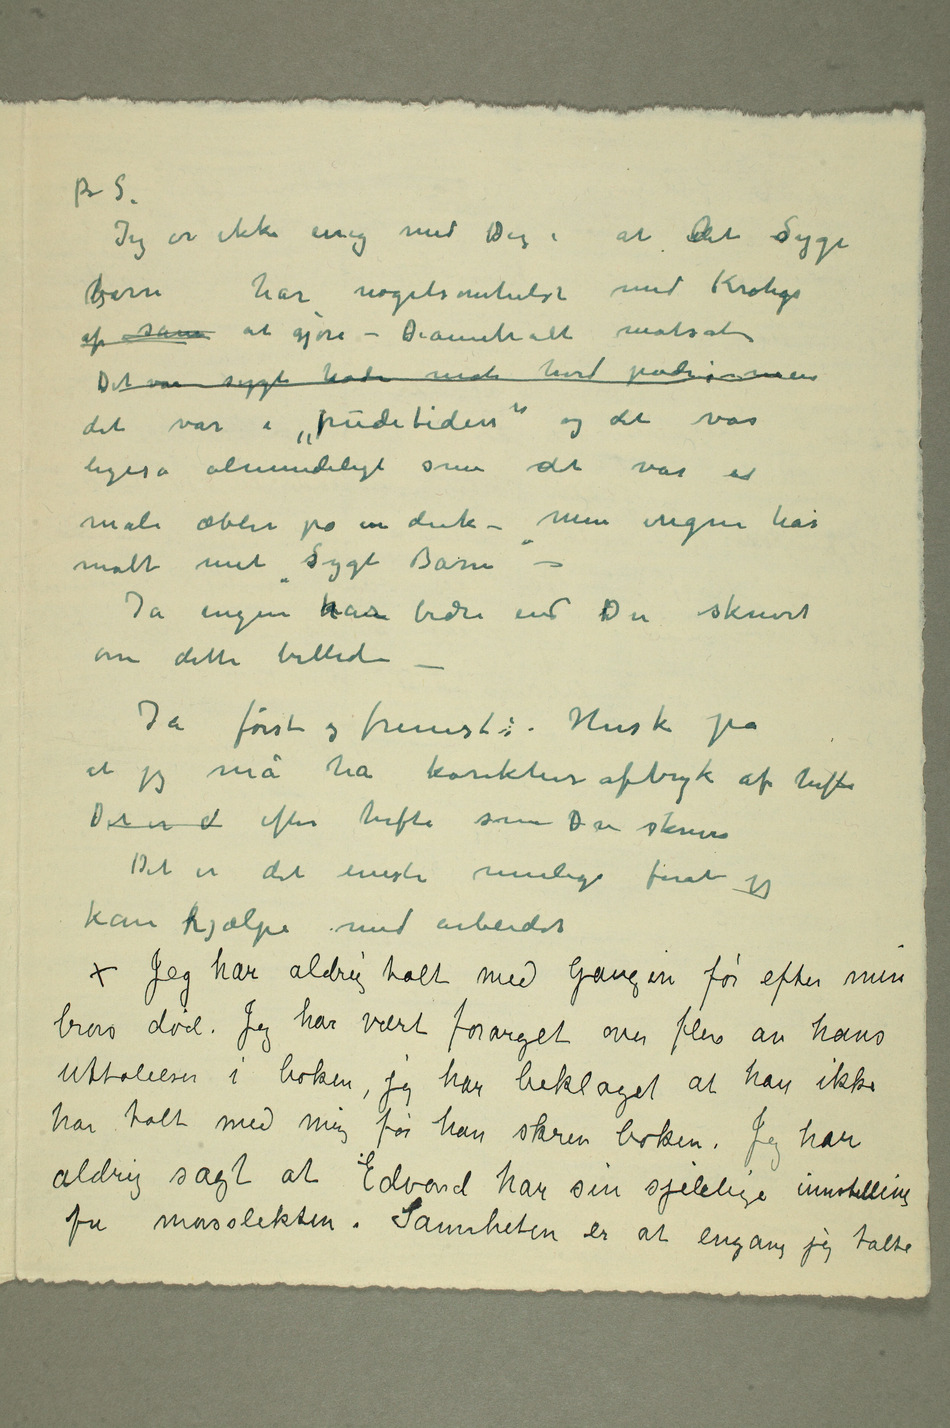 P S.
Jeg er ikke enig med Deg i at det Syge
barn har nogetsomhelst med Kroghs
af samme at gjøre – Diametralt motsat
Det var sygt hade malt hvid pude i men
det var i „pudetiden“ og det var
ligeså almindeligt som det var at
male æbler på en duk – men ingen har
malt mit „Sygt Barn“ –
Ja ingen har bedre end Du skrevet
om dette billede –
Ja først og fremst: Husk på
at jeg må ha korekturaftryk af hefte
Det er d efter hefte som Du skriver
Det er det eneste mulige forat jeg
kan hjælpe med arbeidet
× Jeg har aldrig talt med Gaugin før efter min
brors død. Jeg har vært forarget over flere av hans
uttalelser i boken, jeg har beklaget at han ikke
har talt med mig før han skrev boken. Jeg har
aldrig sagt at Edvard har sin sjelelige innstilling
fra morsslekten. Sannheten er at engang jeg talte